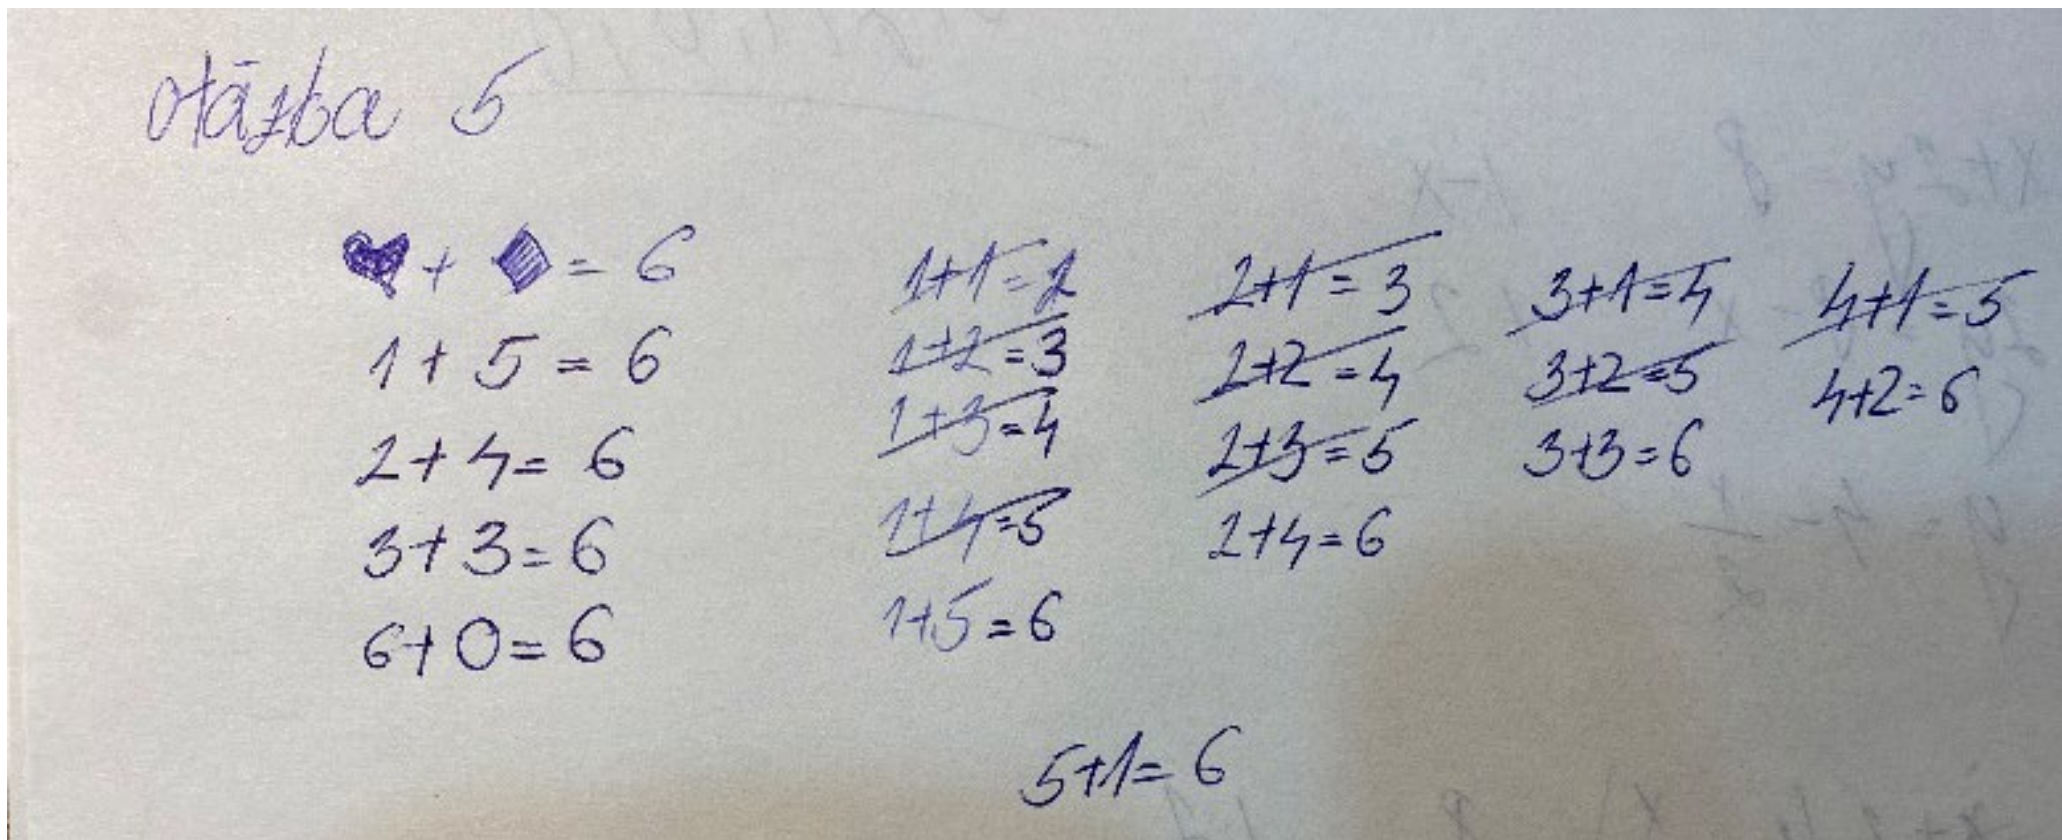 otázka 5
♥ + ♦ = 6
1 + 5 = 6
2 + 4 = 6
3 + 3 = 6
6 + 0 = 6
1+1=2
1+2=3
1+3=4
1+4=5
1+5=6
2+1=3
2+2=4
2+3=5
2+4=6
3+1=4
3+2=5
3+3=6
4+1=5
4+2=6
5+1=6